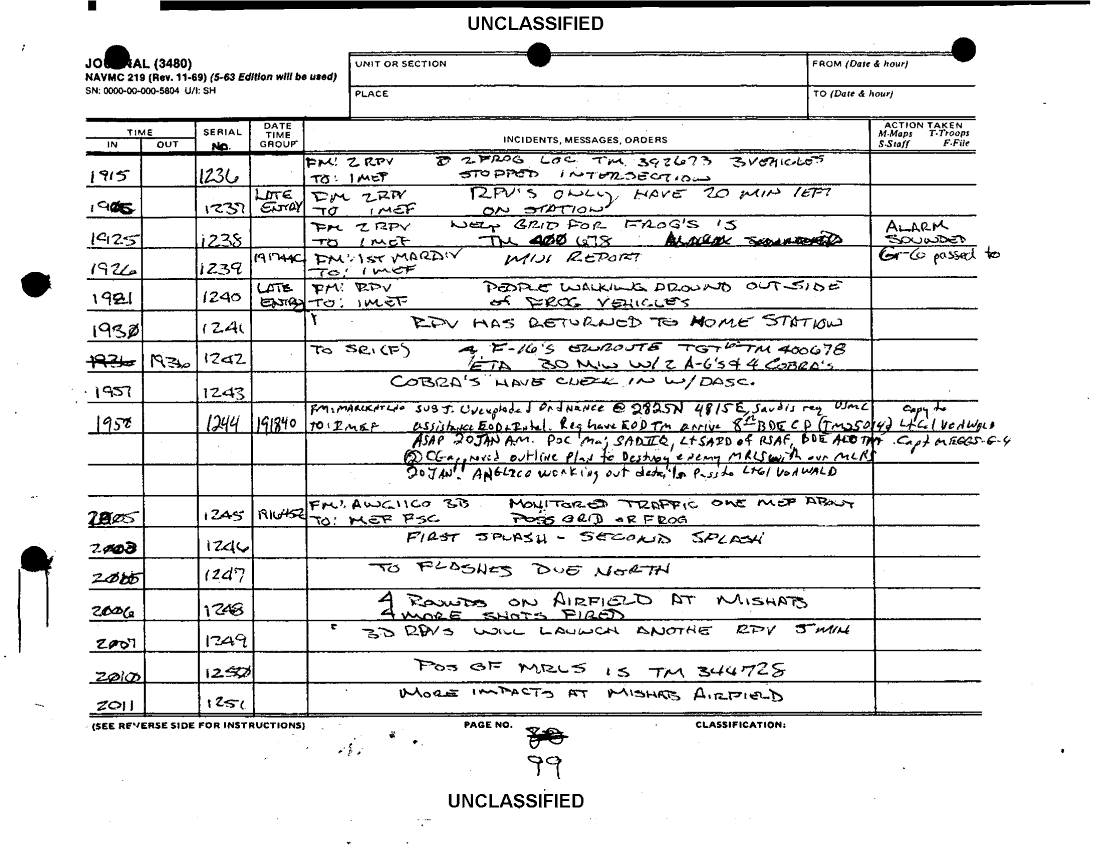 UNCLASSIFIED
JOURNAL (3480)
NAVMC 219 (Rev. 11-69) (5-63 Edition will be used)
SN: 0000-00-000-5804 U/I: SH
UNIT OR SECTION
FROM (Date & hour)
PLACE
TO (Date & hour)
TIME
IN OUT
SERIAL No.
DATE TIME GROUP
INCIDENTS, MESSAGES, ORDERS
ACTION TAKEN
M-Maps T-Troops
S-Staff F-File
FM: 2 RPV 2 FROG LOC TM 392673 3 VEHICLES
1915 1236 TO: 1MEF STOPPED INTERSECTION
LATE FM 2RPV RPV'S ONLY HAVE 20 MIN LEFT
1237 ENTRY TO 1MEF ON STATION
FM 2 RPV NEW GRID FOR FROG'S IS ALARM
1925 1238 TO 1MEF TM 400678 SOUNDED
191744C FM: 1ST MARDIV MIJI REPORT passed to
1926 1239 TO: 1MEF
LATE FM: RPV PEOPLE WALKING AROUND OUT-SIDE
1921 1240 ENTRY TO: 1MEF of FROG VEHICLES
1930 1241 RPV HAS RETURNED TO HOME STATION
TO SRI(F) 4 F-16'S ENROUTE TGT TM 400678
1936 1936 1242 ETA 30 MIN W/2 A-6's & 4 COBRA'S
1957 1243 COBRA'S HAVE CHECK IN W/DASC.
SUBJ. Unexploded Ordnance @ 2825N 4815E, Saudis req USMC Copy to
1958 1244 191840 TO: IMEF assistance EOD. Req have EOD Tm arrive 8th BDE CP
ASAP 20JAN AM. POC Maj of RSAF, BDE Capt MEGGS-G-4
② CG approved outline Plan to Destroy enemy MRLS with our MLRS
20JAN. ANGLICO working out details. Pass to
FM: 3D MONITORED TRAFFIC ONE MEF ABOUT
1245 191645Z TO: MEF FSC POSS GRID OR FROG
1246 FIRST SPLASH - SECOND SPLASH
1247 TO FLASHES DUE NORTH
4 ROUNDS ON AIRFIELD AT MISHAB
2006 1248 4 MORE SHOTS FIRED
2007 1249 3D RPVS WILL LAUNCH ANOTHE RPV 5 MIN
2010 1250 POS OF MRLS IS TM 344728
2011 1251 MORE IMPACTS AT MISHAB AIRFIELD
(SEE REVERSE SIDE FOR INSTRUCTIONS) PAGE NO. CLASSIFICATION:
99
UNCLASSIFIED